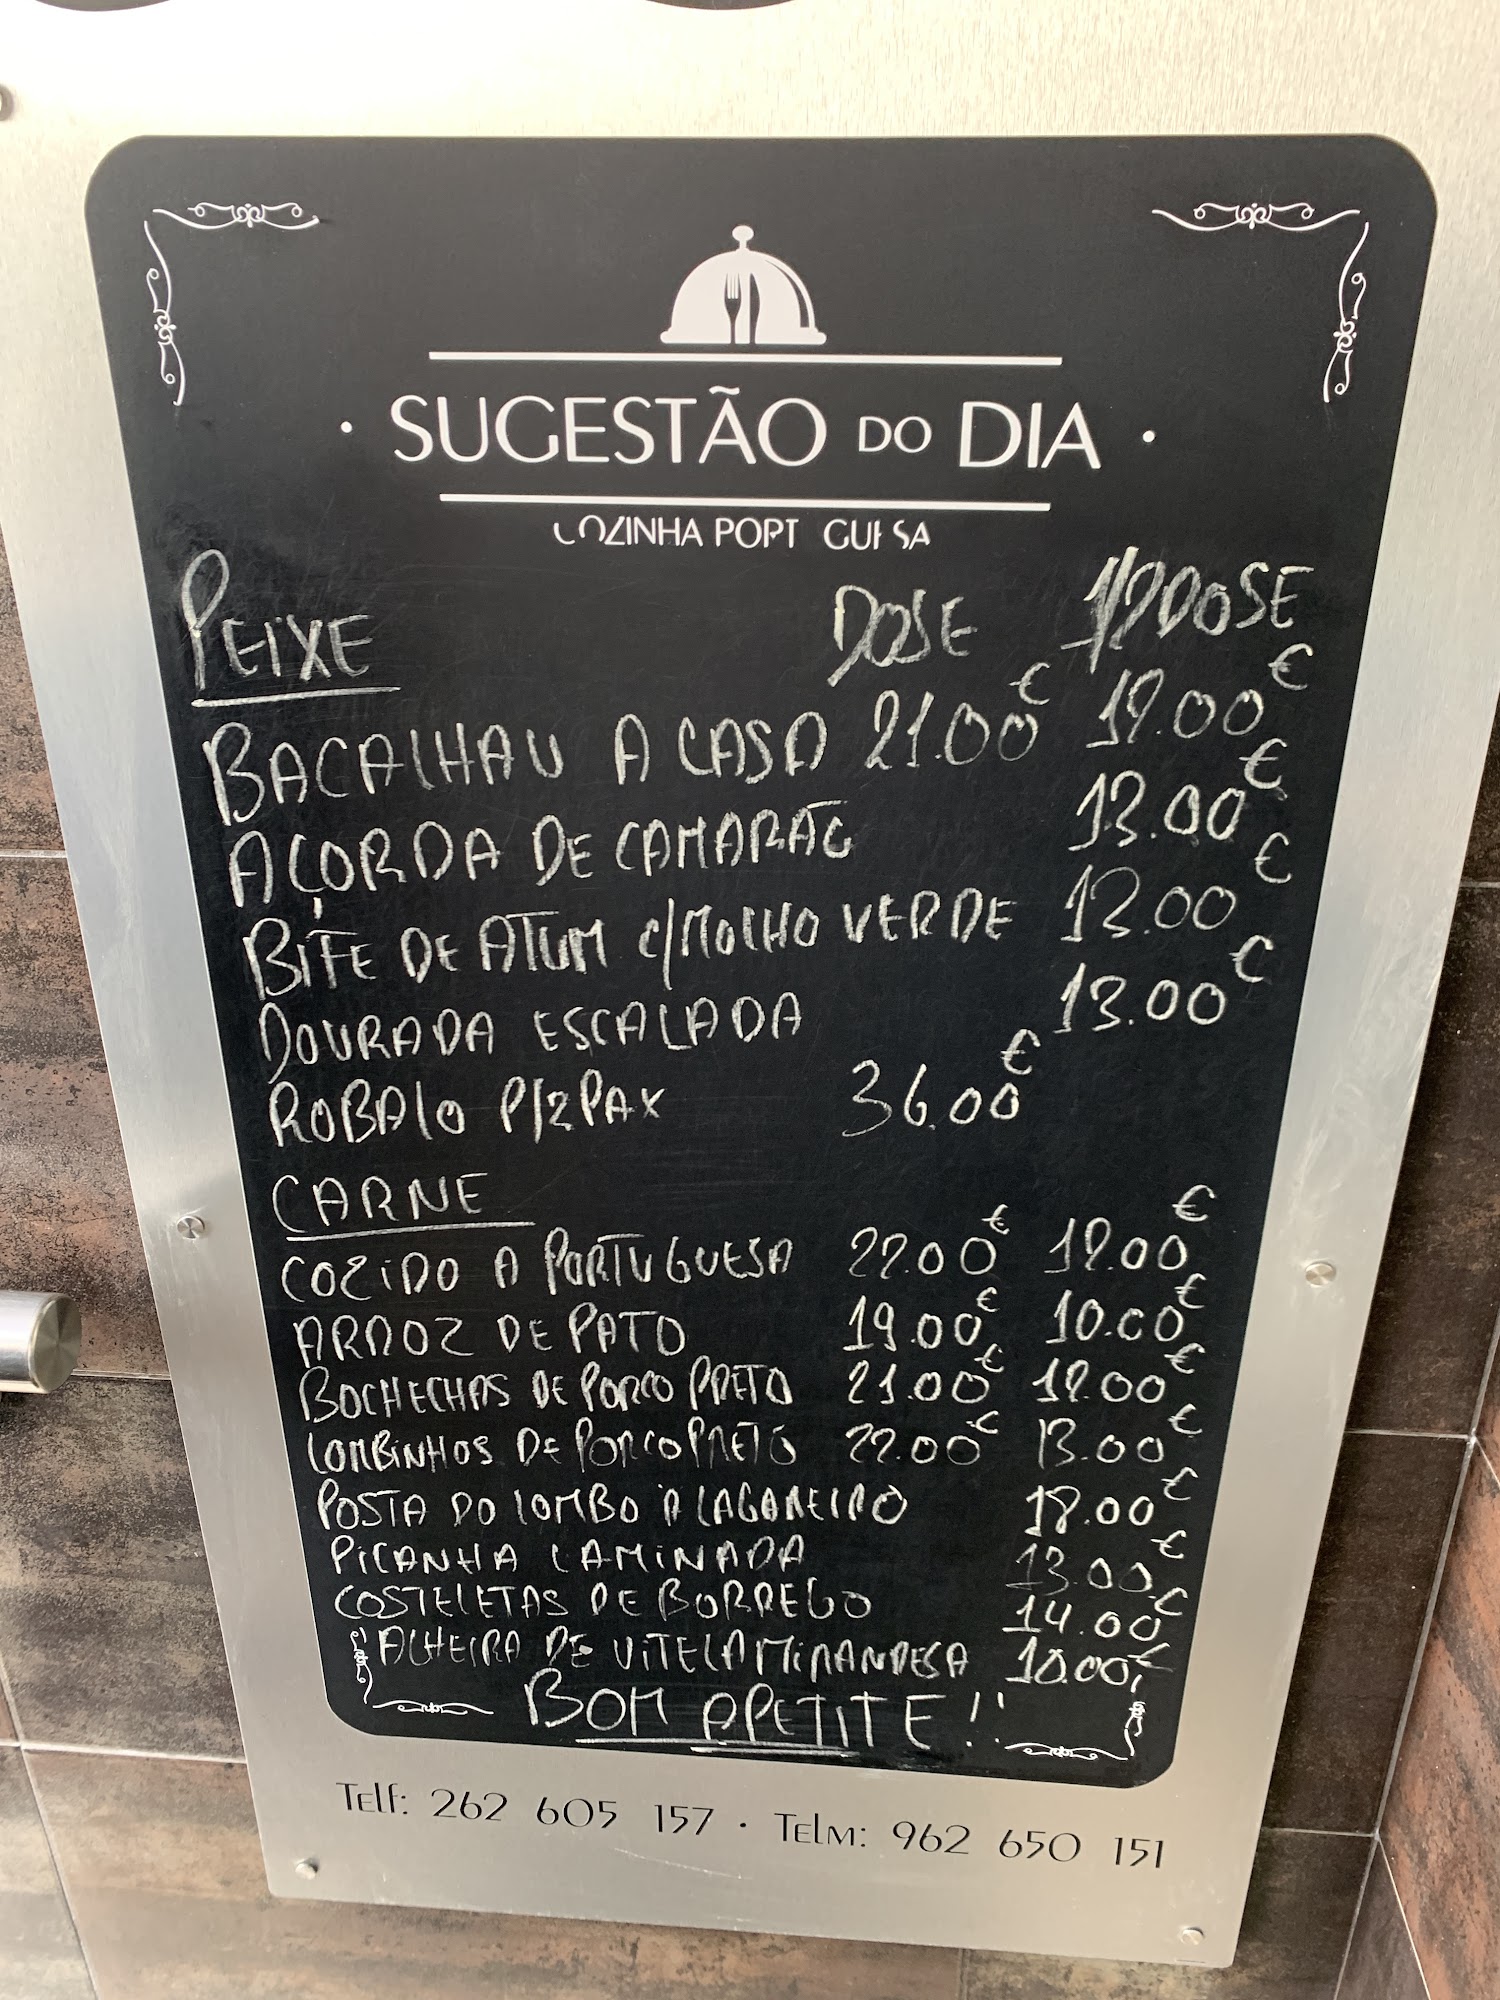 · SUGESTÃO DO DIA ·
COZINHA PORTUGUESA
PEIXE DOSE 1/2 DOSE
BACALHAU A CASA 21.00€ 12.00€
AÇORDA DE CAMARÃO 13.00€
BIFE DE ATUM C/MOLHO VERDE 13.00€
DOURADA ESCALADA 13.00€
ROBALO P/2 PAX 36.00€
CARNE
COZIDO A PORTUGUESA 22.00€ 12.00€
ARROZ DE PATO 19.00€ 10.00€
BOCHECHAS DE PORCO PRETO 21.00€ 12.00€
LOMBINHOS DE PORCO PRETO 22.00€ 13.00€
POSTA DO LOMBO A LAGAREIRO 18.00€
PICANHA LAMINADA 13.00€
COSTELETAS DE BORREGO 14.00€
ALHEIRA DE VITELA MIRANDESA 10.00€
BOM APETITE!!
TELF: 262 605 157 · TELM: 962 650 151